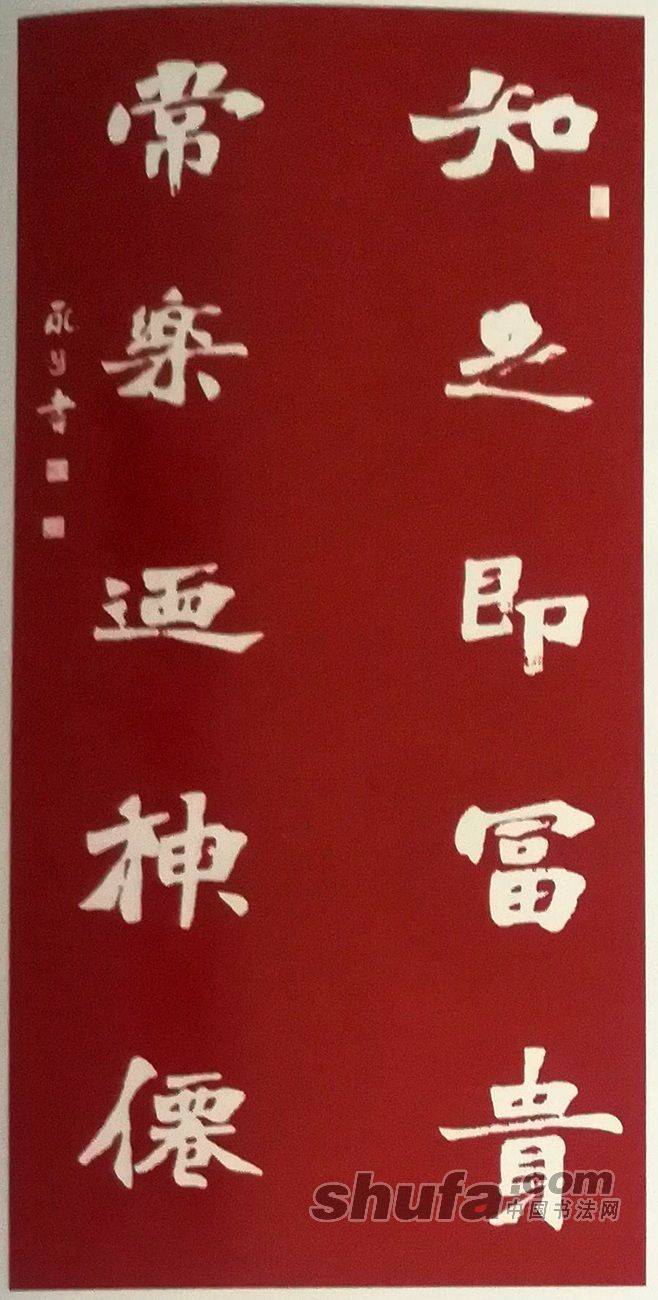 知足即富貴
常樂迺神僊
永 书
shufa.com
中国书法网